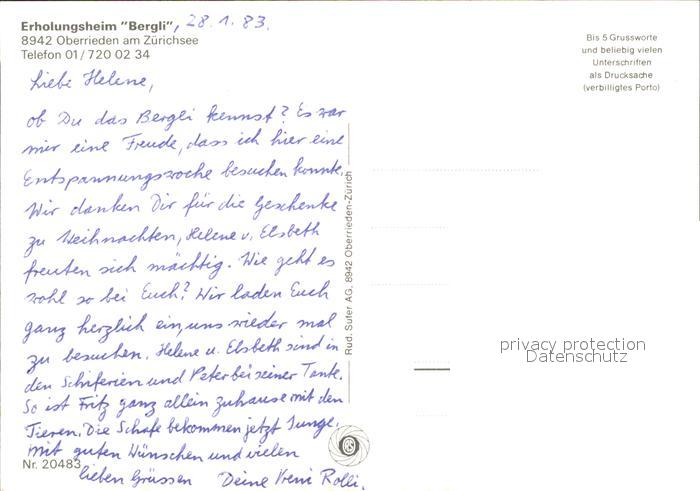 Erholungsheim "Bergli", 28.1.83.
8942 Oberrieden am Zürichsee
Telefon 01/720 02 34
Bis 5 Grussworte
und beliebig vielen
Unterschriften
als Drucksache
(verbilligtes Porto)
Liebe Helene,
ob Du das Bergli kennst? Es war
mir eine Freude, dass ich hier eine
Entspannungswoche besuchen konnte.
Wir danken Dir für die Geschenke
zu Weihnachten, Helene u. Elsbeth
freuten sich mächtig. Wie geht es
wohl so bei Euch? Wir laden Euch
ganz herzlich ein, uns wieder mal
zu besuchen. Helene u. Elsbeth sind in
den Schiferien und Peter bei seiner Tante.
So ist Fritz ganz allein zuhause mit den
Tieren. Die Schafe bekommen jetzt Junge.
Mit guten Wünschen und vielen
lieben Grüssen Deine Vreni Rolli.
Nr. 20483
Rud. Suter AG, 8942 Oberrieden-Zürich
privacy protection
Datenschutz